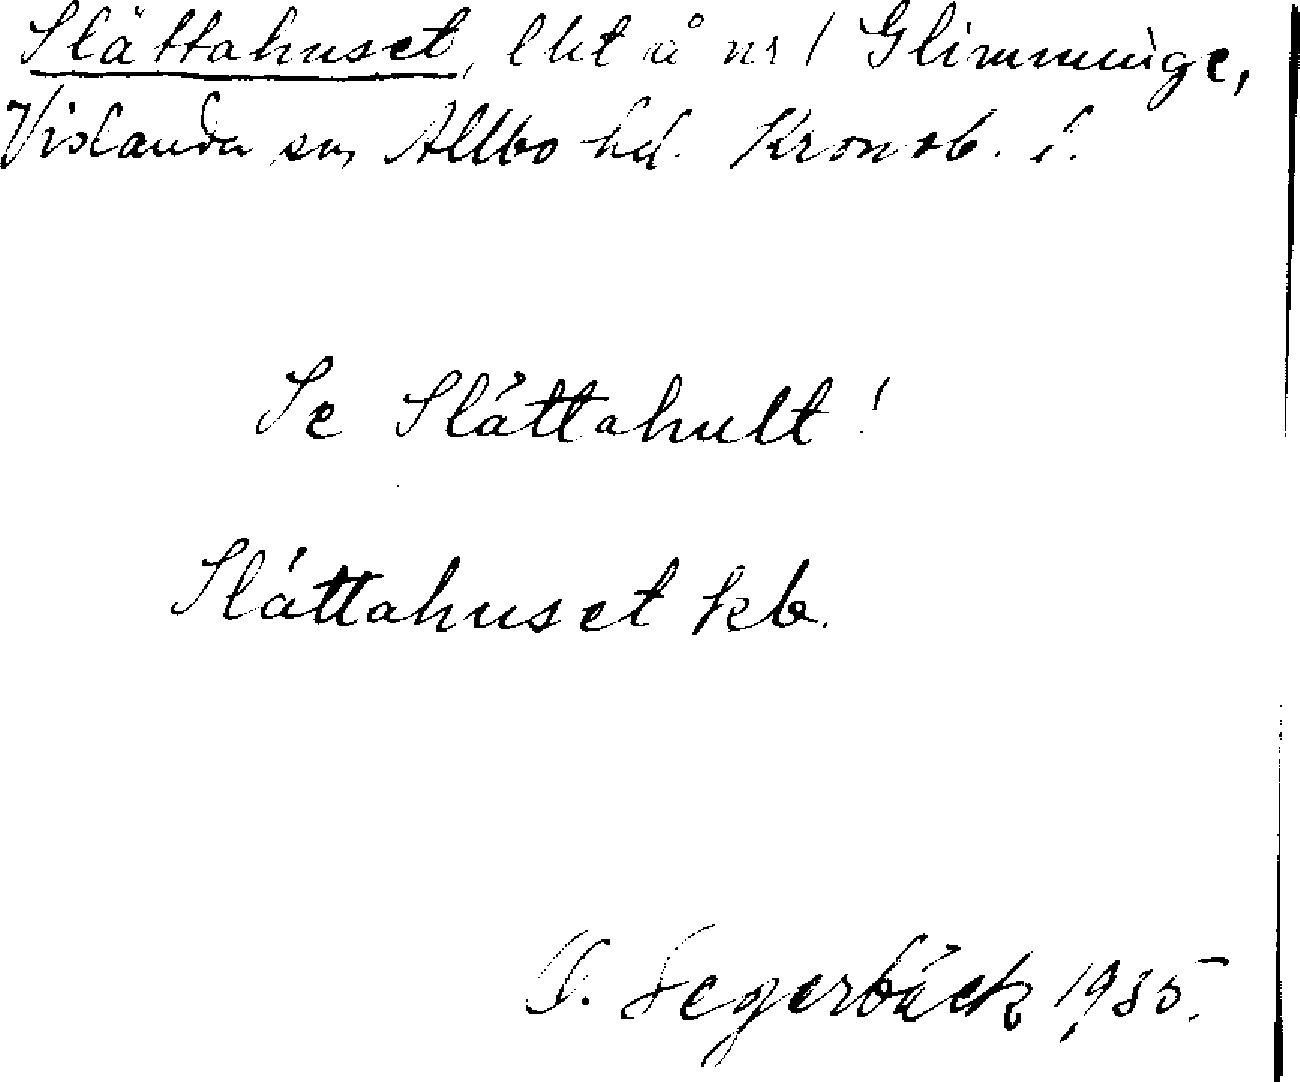 Slättahuset, lht å nr 1 Glimminge,
Vislanda sn, Allbo hd. Kronob. l.
Se Slättahult!
Slättahuset kb.
Segerbäck 1935.